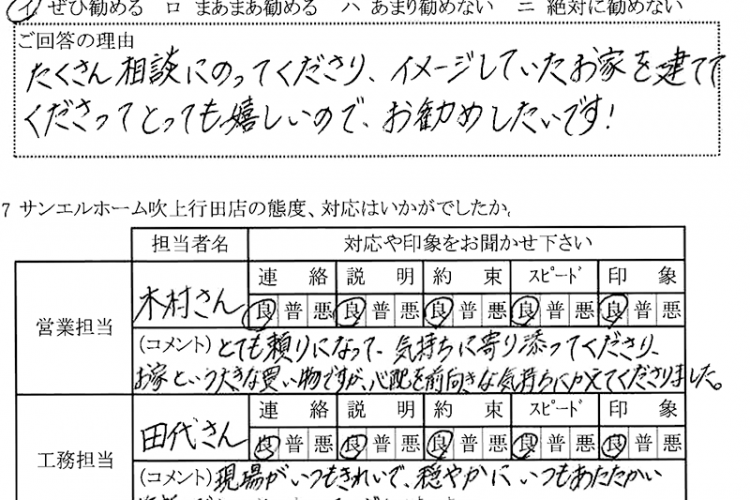 イ ぜひ勧める ロ まあまあ勧める ハ あまり勧めない ニ 絶対に勧めない
ご回答の理由
たくさん相談にのってくださり、イメージしていたお家を建てて
くださってとっても嬉しいので、お勧めしたいです!
7 サンエルホーム吹上行田店の態度、対応はいかがでしたか。
担当者名 対応や印象をお聞かせ下さい
営業担当 木村さん
連絡 説明 約束 スピード 印象
良 普 悪 良 普 悪 良 普 悪 良 普 悪 良 普 悪
(コメント)とても頼りになって、気持ちに寄り添ってくださり、
お家という大きな買い物ですが、心配を前向きな気持ちにかえてくださりました。
工務担当 田代さん
連絡 説明 約束 スピード 印象
良 普 悪 良 普 悪 良 普 悪 良 普 悪 良 普 悪
(コメント)現場がいつもきれいで、穏やかに いつもあたたかい